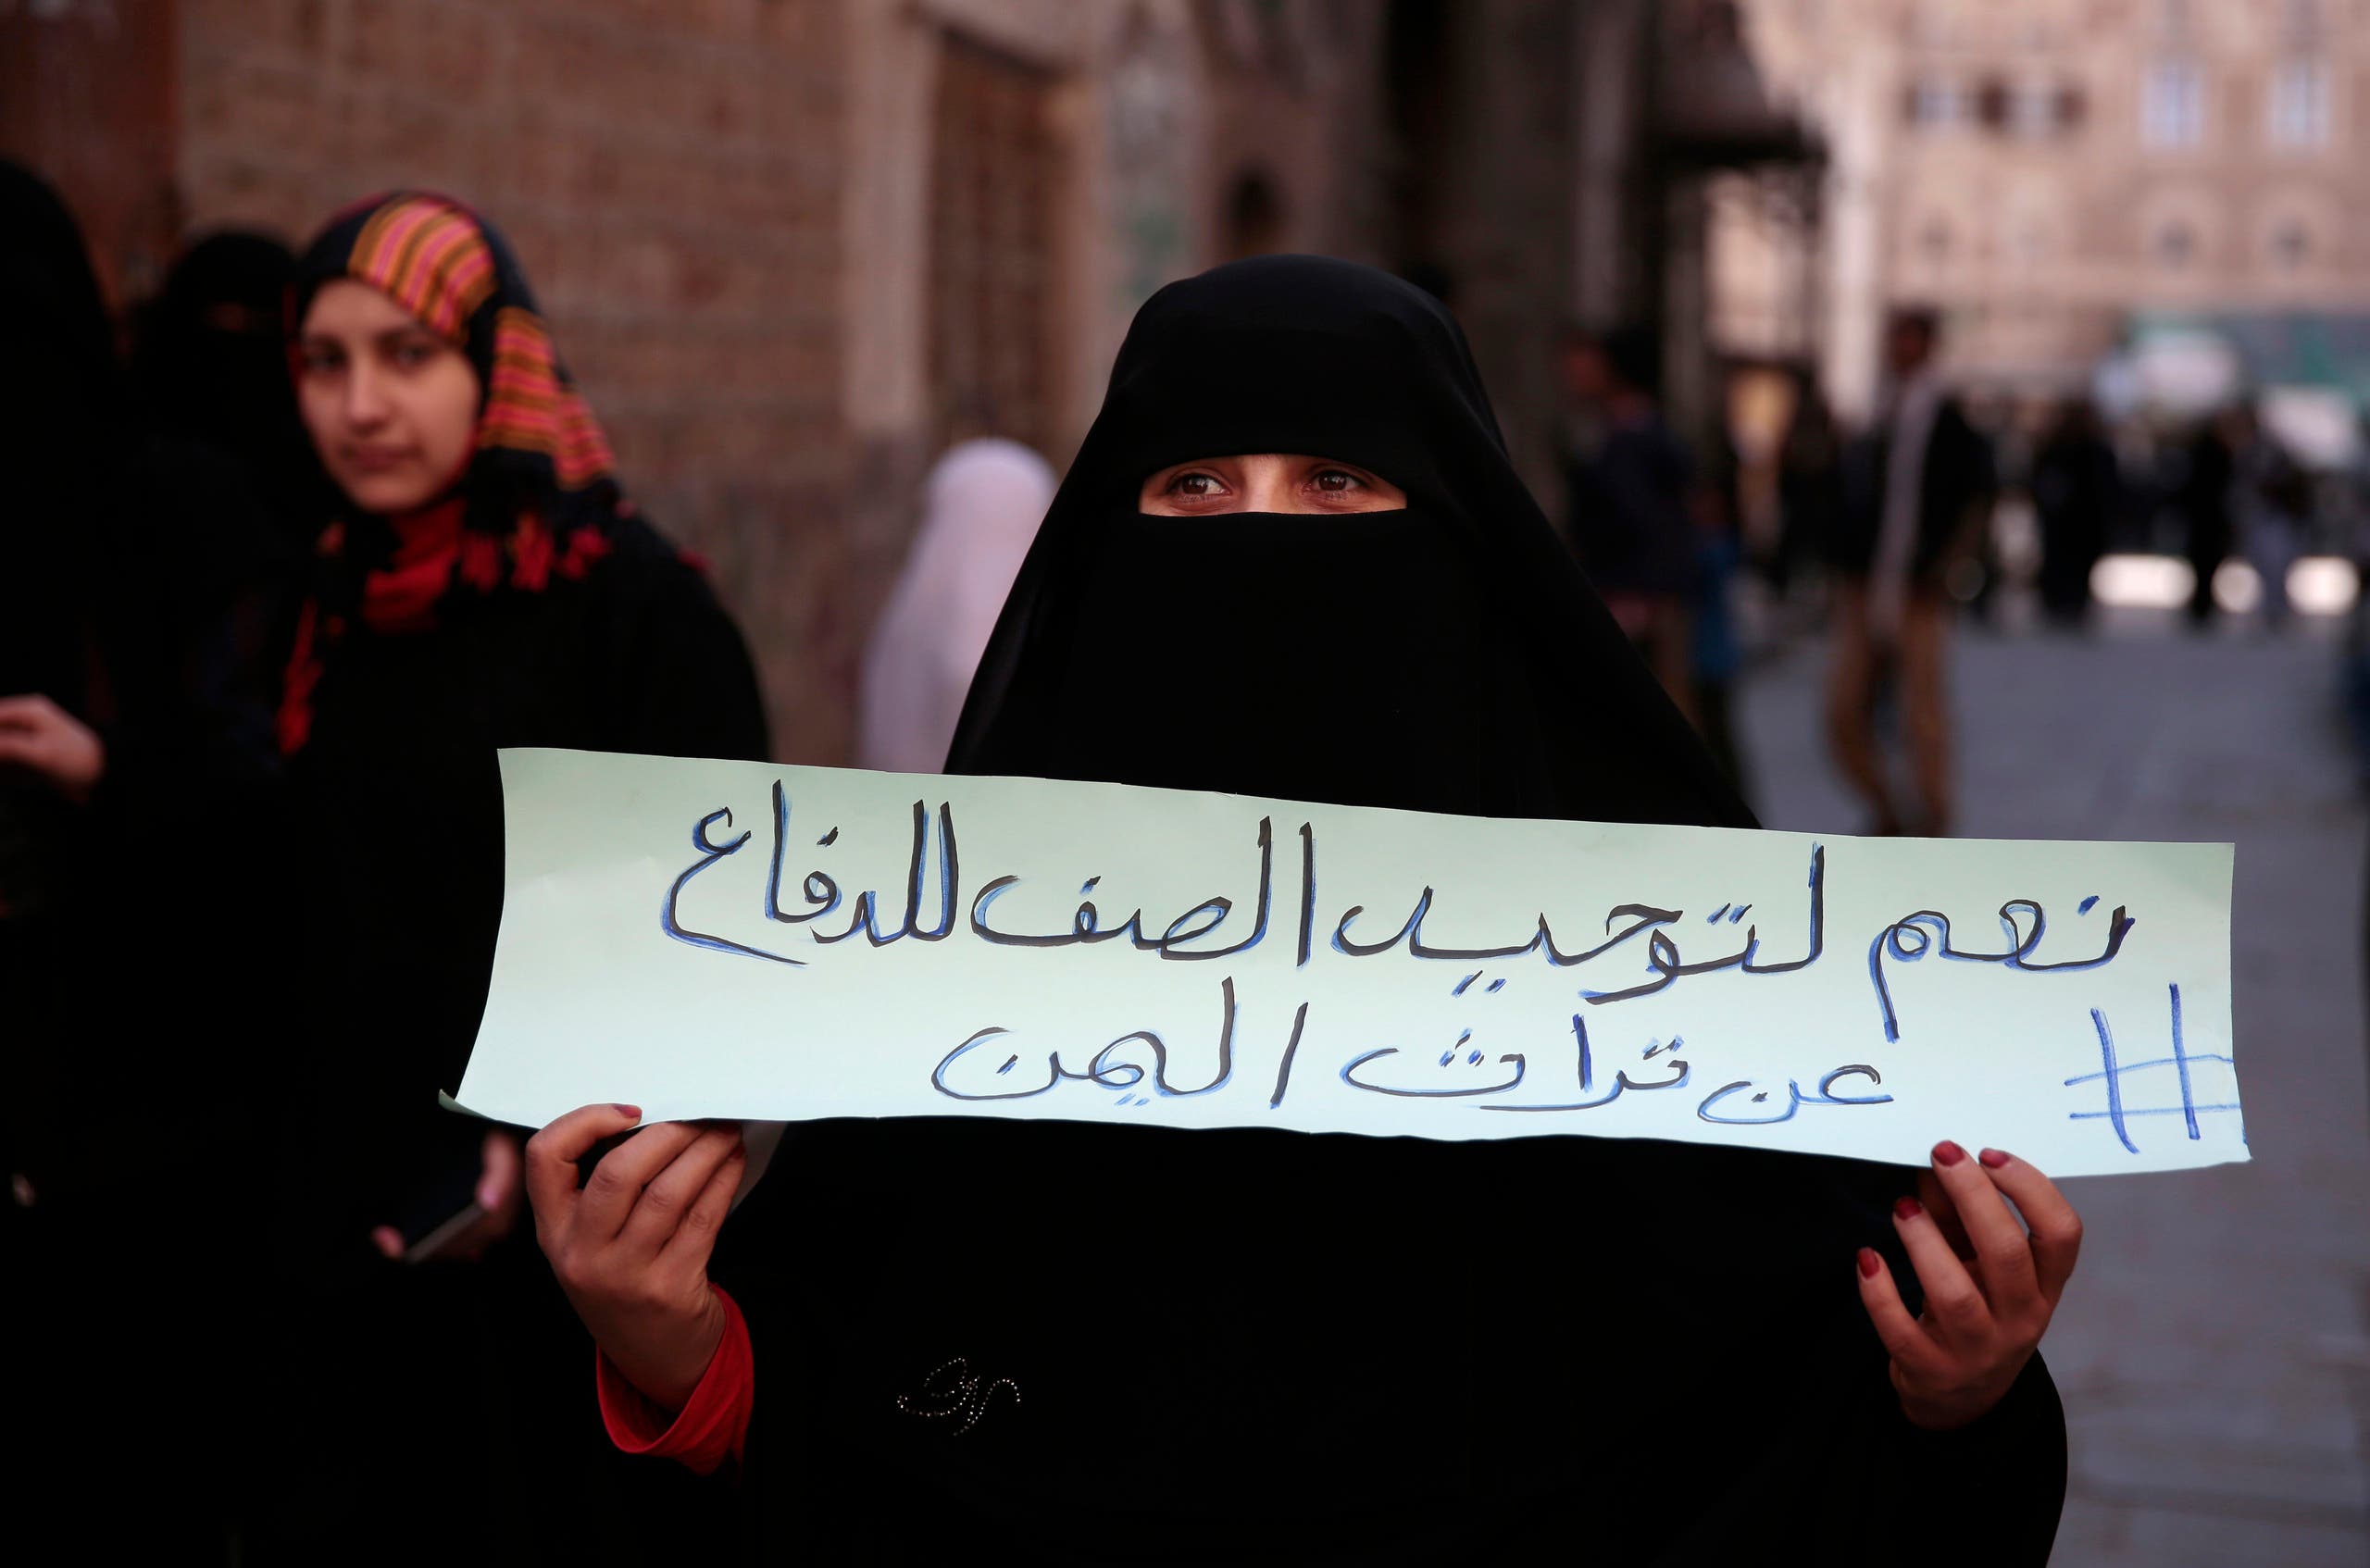 نعم لتوحيد الصف للدفاع
# عن تراث اليمن